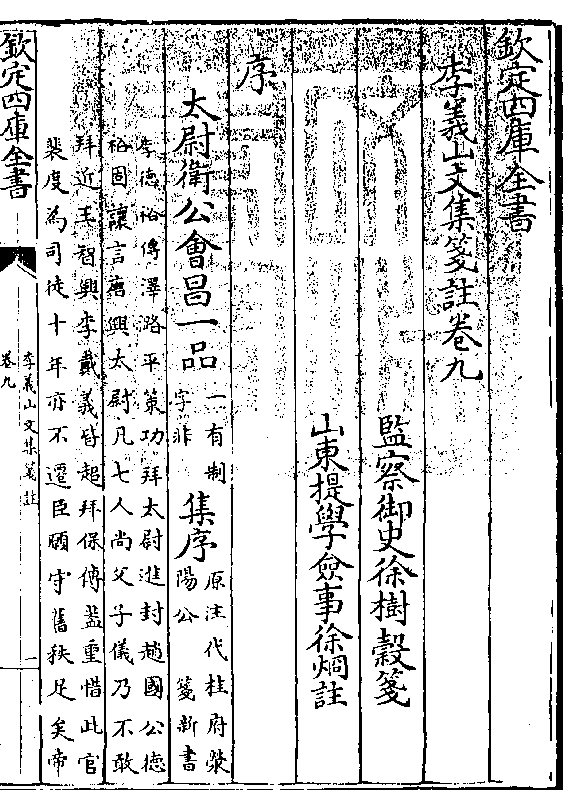 欽定四庫全書
李義山文集箋註卷九
監察御史徐樹穀箋
山東提學僉事徐炯註
序
太尉衛公會昌一品一有制字非集序原注代桂府滎陽公 箋新書
李德裕傳澤潞平策功拜太尉進封趙國公德
裕固讓言唐興太尉凡七人尚父子儀乃不敢
拜近王智興李載義皆超拜保傅蓋重惜此官
裴度為司徒十年亦不遷臣願守舊秩足矣帝
欽定四庫全書
李義山文集箋註
卷九
一